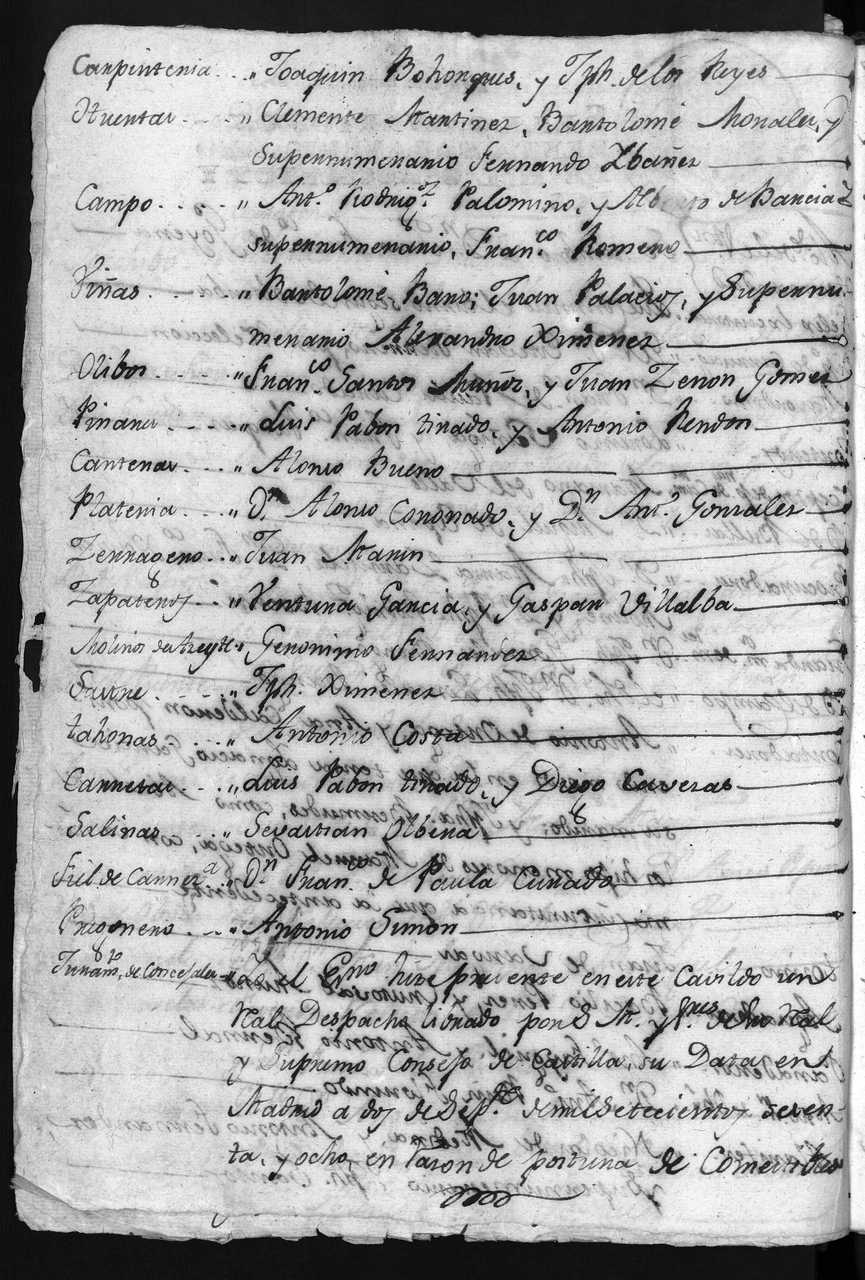 Carpinteria... " Joaquin Bohorques, y Jph. de los Reyes
Huertas.... " Clemente Martinez, Bartolomé Morales, y
Supernumerario Fernando Ybañez
Campo..... " Ant.º Rodrig.z Palomino, y Alberto de Barcia
supernumerario, Fran.co Romero
Viñas.... " Bartolomé Baro; Juan Palacios, y Supernu-
merario Alexandro Ximenez
Olibos.... " Fran.co Santos Muñoz, y Juan Zenon Gomez
Pinares.... " Luis Pabon tirado, y Antonio Rendon
Canteras... " Alonso Bueno
Plateria... " D.n Alonso Coronado, y D.n Ant.º Gonzalez
Zerragero.. " Juan Marin
Zapateros... " Ventura Garcia, y Gaspar Villalba
Molinos de Azeyte " Geronimo Fernandez
Sastre.... " Jph. Ximenez
tahonas.... " Antonio Costa
Carretas... " Luis Pabon tirado, y Diego Caveras
Salinas.... " Sevastian Olbera
Fiel de Carner.a " D.n Fran.co de Paula Curado
Pregonero.. " Antonio Simon
Juram.to de Concejales " Yo el Ess.no hize presente en este Cavildo un
Real Despacho librado por S. M. y S.res de su Real
y Supremo Consejo de Castilla, su Data en
Madrid a dos de Sep.bre de mil setecientos seten-
ta, y ocho, en razon de postura de Comestibles